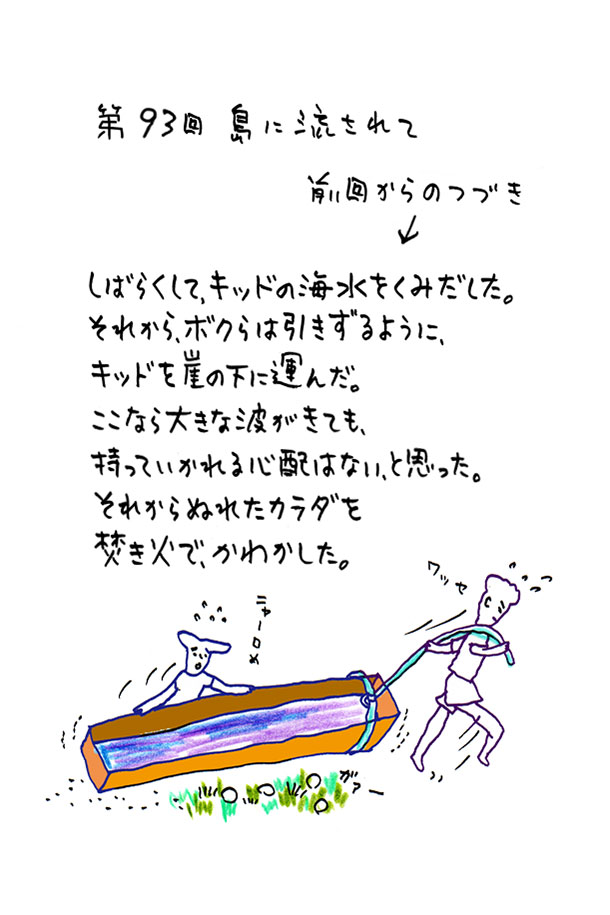 第93回 島に流されて
前回からのつづき
しばらくして、キッドの海水をくみだした。
それから、ボクらは引きずるように、
キッドを崖の下に運んだ。
ここなら大きな波がきても、
持っていかれる心配はない、と思った。
それからぬれたカラダを
焚き火で、かわかした。
ワッセ
ニャーロめ
ガァー